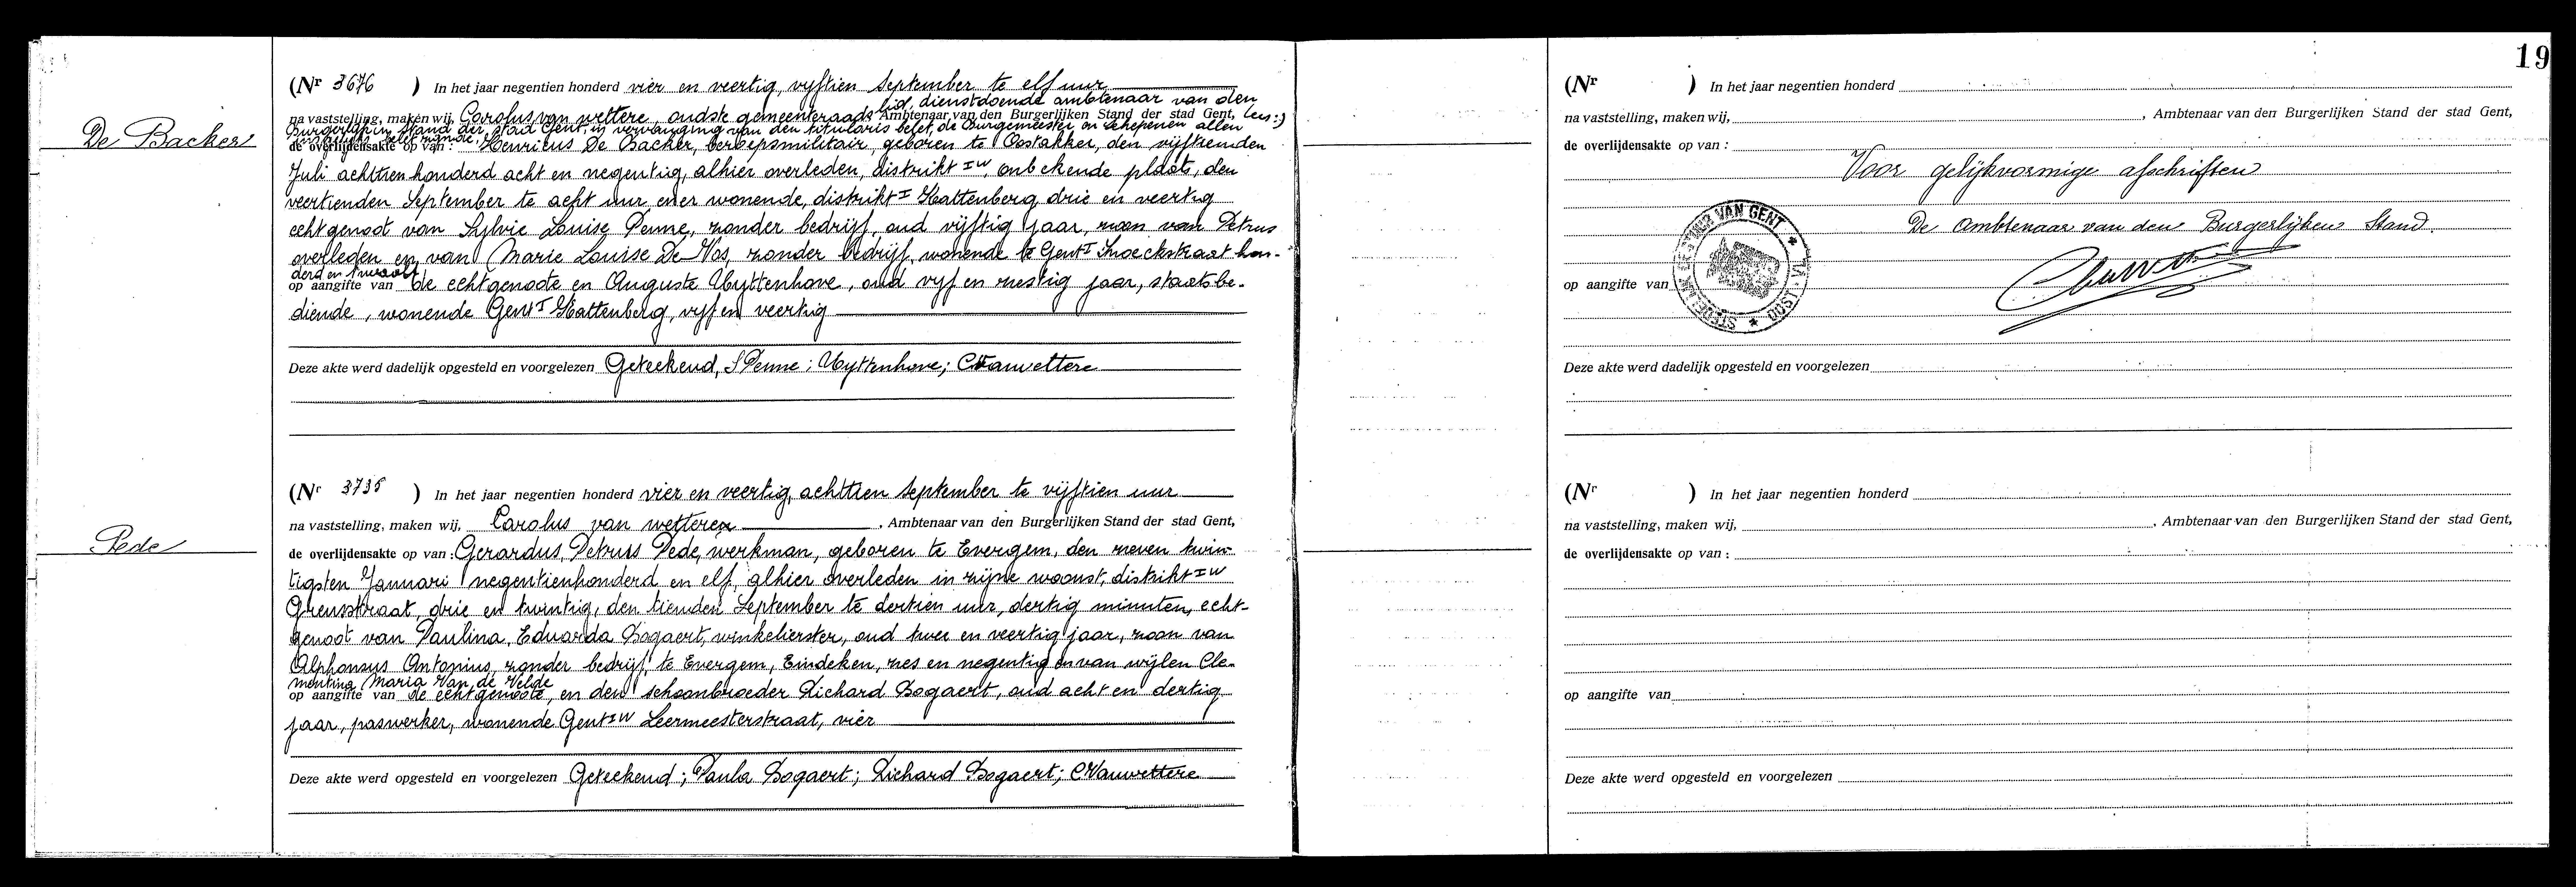 De Backer
(Nr 3676 ) In het jaar negentien honderd vier en veertig, vyftien September te elf uur
na vaststelling, maken wij, Carolus van wettere, oudste gemeenteraadslid, dienstdoende ambtenaar van den
Ambtenaar van den Burgerlijken Stand der stad Gent, lees:)
Burgerlijken Stand der stad Gent, in vervanging van den titularis belet, de Burgemeester en Schepenen allen
de overlijdensakte op van : Henricus De Backer, beroepsmilitair, geboren te Oostakker, den vijftienden
Juli achttienhonderd acht en negentig, alhier overleden, distrikt IW, onbekende plaats, den
veertienden September te acht uur en er wonende, distrikt I Kattenberg drie en veertig
echtgenoot van Sylvie Louise Penne, zonder bedrijf, oud vijftig jaar, zoon van Petrus
overleden en van Marie Louise De Vos, zonder bedrijf, wonende te Gent I Snoeckstraat hon-
derd en twaalf
op aangifte van de echtgenoote en Auguste Uyttenhove, oud vyf en zestig jaar, staatsbe-
diende, wonende Gent I Kattenberg, vyf en veertig
Deze akte werd dadelijk opgesteld en voorgelezen Geteekend, S Penne; Uyttenhove; CVanwettere
Pede
(Nr 3735 ) In het jaar negentien honderd vier en veertig, achttien September te vijftien uur
na vaststelling, maken wij, Carolus van wetteren , Ambtenaar van den Burgerlijken Stand der stad Gent,
de overlijdensakte op van : Gerardus, Petrus Pede, werkman, geboren te Evergem, den zeven twin-
tigsten Januari negentienhonderd en elf, alhier overleden in zijne woonst, distrikt IW
Grensstraat, drie en twintig, den tienden September te dertien uur, dertig minuten, echt-
genoot van Paulina, Eduarda Bogaert, winkelierster, oud twee en veertig jaar, zoon van
Alphonsus Antonius, zonder bedrijf, te Evergem, Eindeken, zes en negentig en van wijlen Cle-
mentina Maria Van de Velde
op aangifte van de echtgenoote, en den schoonbroeder Richard Bogaert, oud acht en dertig
jaar, paswerker, wonende Gent IW Leermeesterstraat, vier
Deze akte werd opgesteld en voorgelezen Geteekend; Paula Bogaert; Richard Bogaert; CVanwettere
19
(Nr ) In het jaar negentien honderd
na vaststelling, maken wij, , Ambtenaar van den Burgerlijken Stand der stad Gent,
de overlijdensakte op van :
Voor gelijkvormige afschriften
De Ambtenaar van den Burgerlijken Stand.
op aangifte van
Deze akte werd dadelijk opgesteld en voorgelezen
(Nr ) In het jaar negentien honderd
na vaststelling, maken wij, , Ambtenaar van den Burgerlijken Stand der stad Gent,
de overlijdensakte op van :
op aangifte van
Deze akte werd opgesteld en voorgelezen